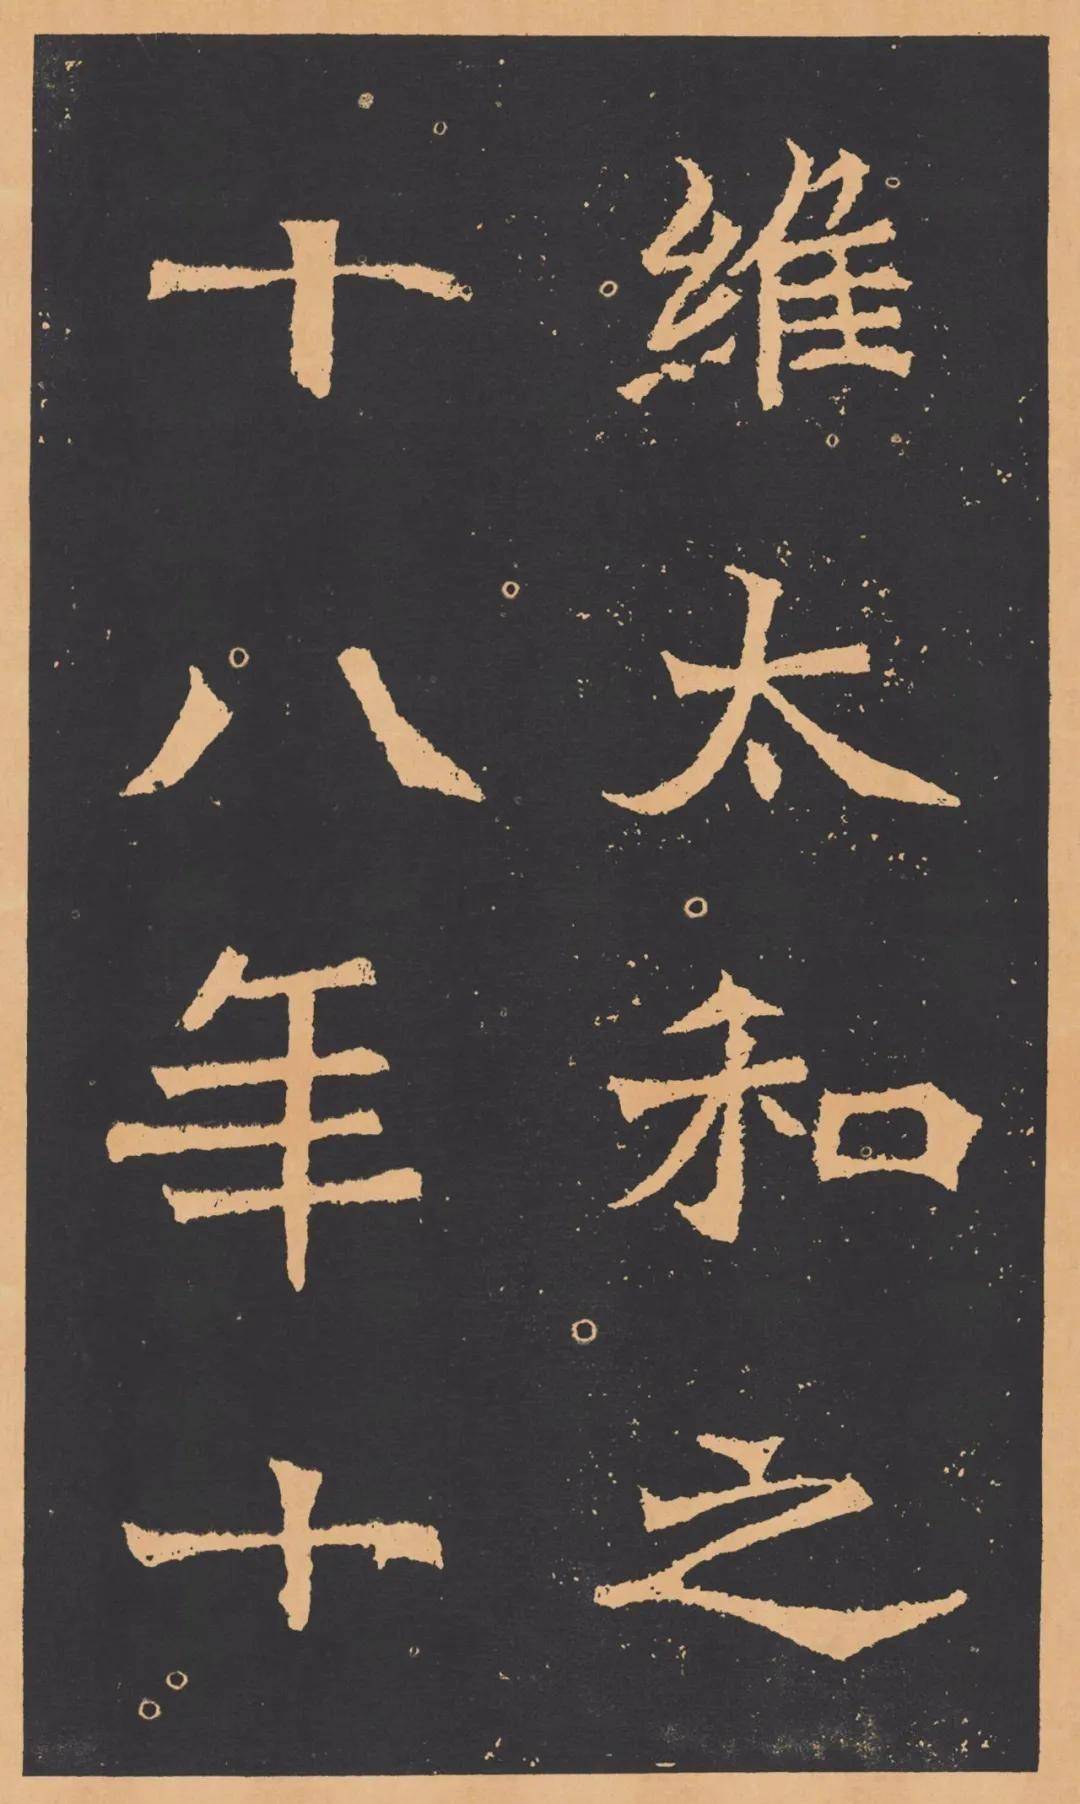 維太和之
十八年十